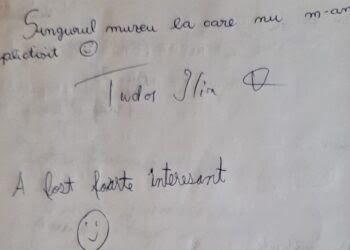 Singurul muzeu la care nu m-am
plictisit
Tudor Ilin
A fost foarte interesant